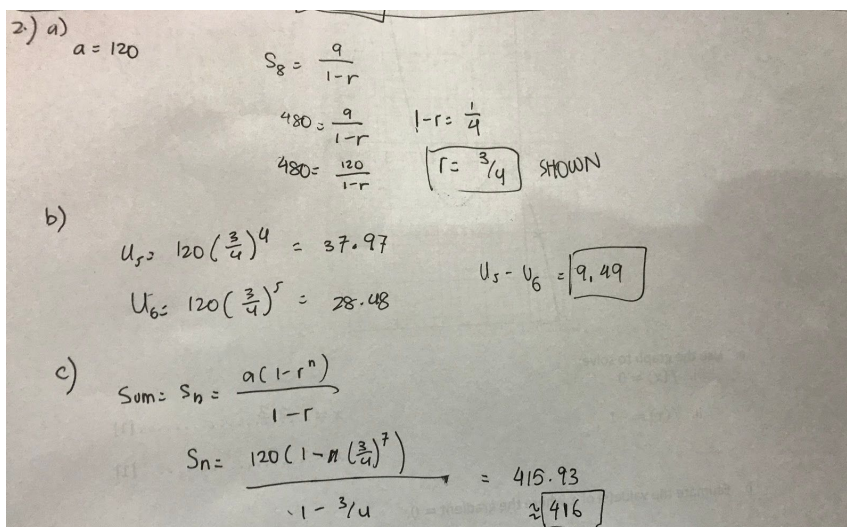 2.) a)
a = 120
S8 = a/1-r
480 = a/1-r
480 = 120/1-r
1-r = 1/4
r = 3/4 SHOWN
b)
U5 = 120(3/4)^4 = 37.97
U6 = 120(3/4)^5 = 28.48
U5 - U6 = 9.49
c)
Sum = Sn = a(1-r^n)/1-r
Sn = 120(1-(3/4)^7)/1-3/4 = 415.93
≈ 416